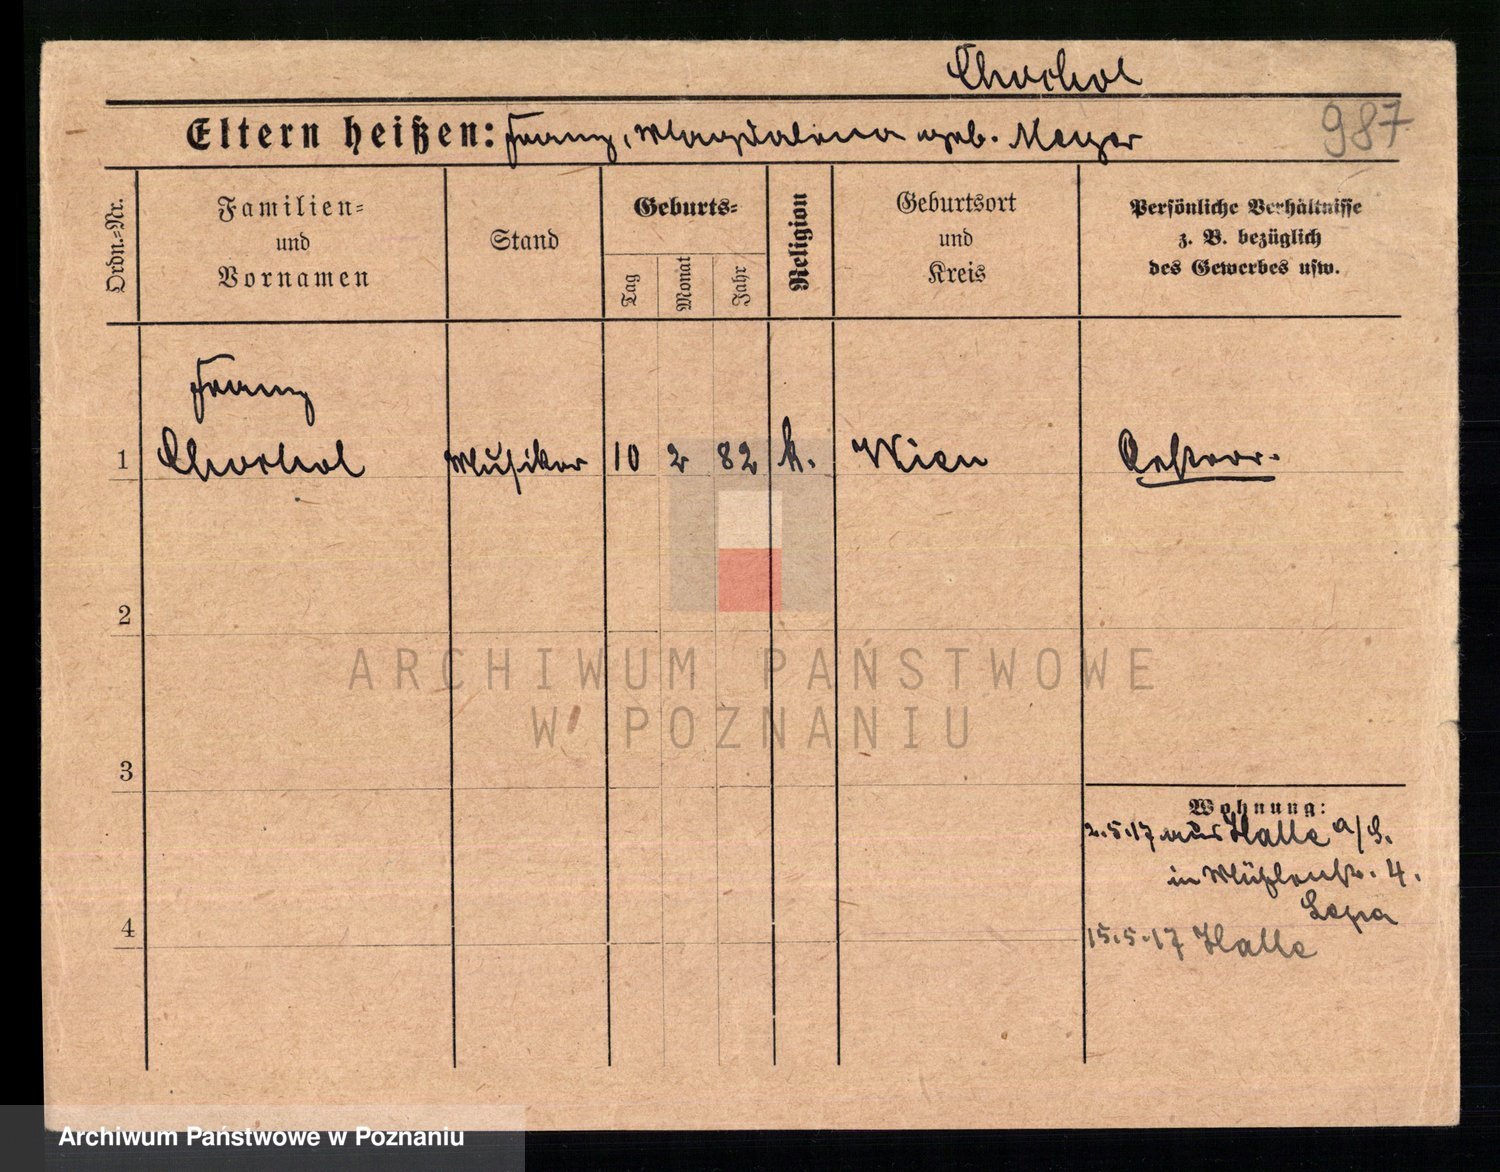 Chochol
Eltern heißen: Franz, Magdalena geb. Meyer
987
Ordn.=Nr.
Familien=
und
Vornamen
Stand
Geburts=
Tag
Monat
Jahr
Religion
Geburtsort
und
Kreis
Persönliche Verhältnisse
z. B. bezüglich
des Gewerbes usw.
Franz
1 Chochol Musiker 10 2 82 k. Wien Oesterr.
2
3
4
Wohnung:
2.5.17 aus Halle a/S.
in Mühlenstr. 4.
15.5.17 Halle
ARCHIWUM PAŃSTWOWE
W POZNANIU
Archiwum Państwowe w Poznaniu